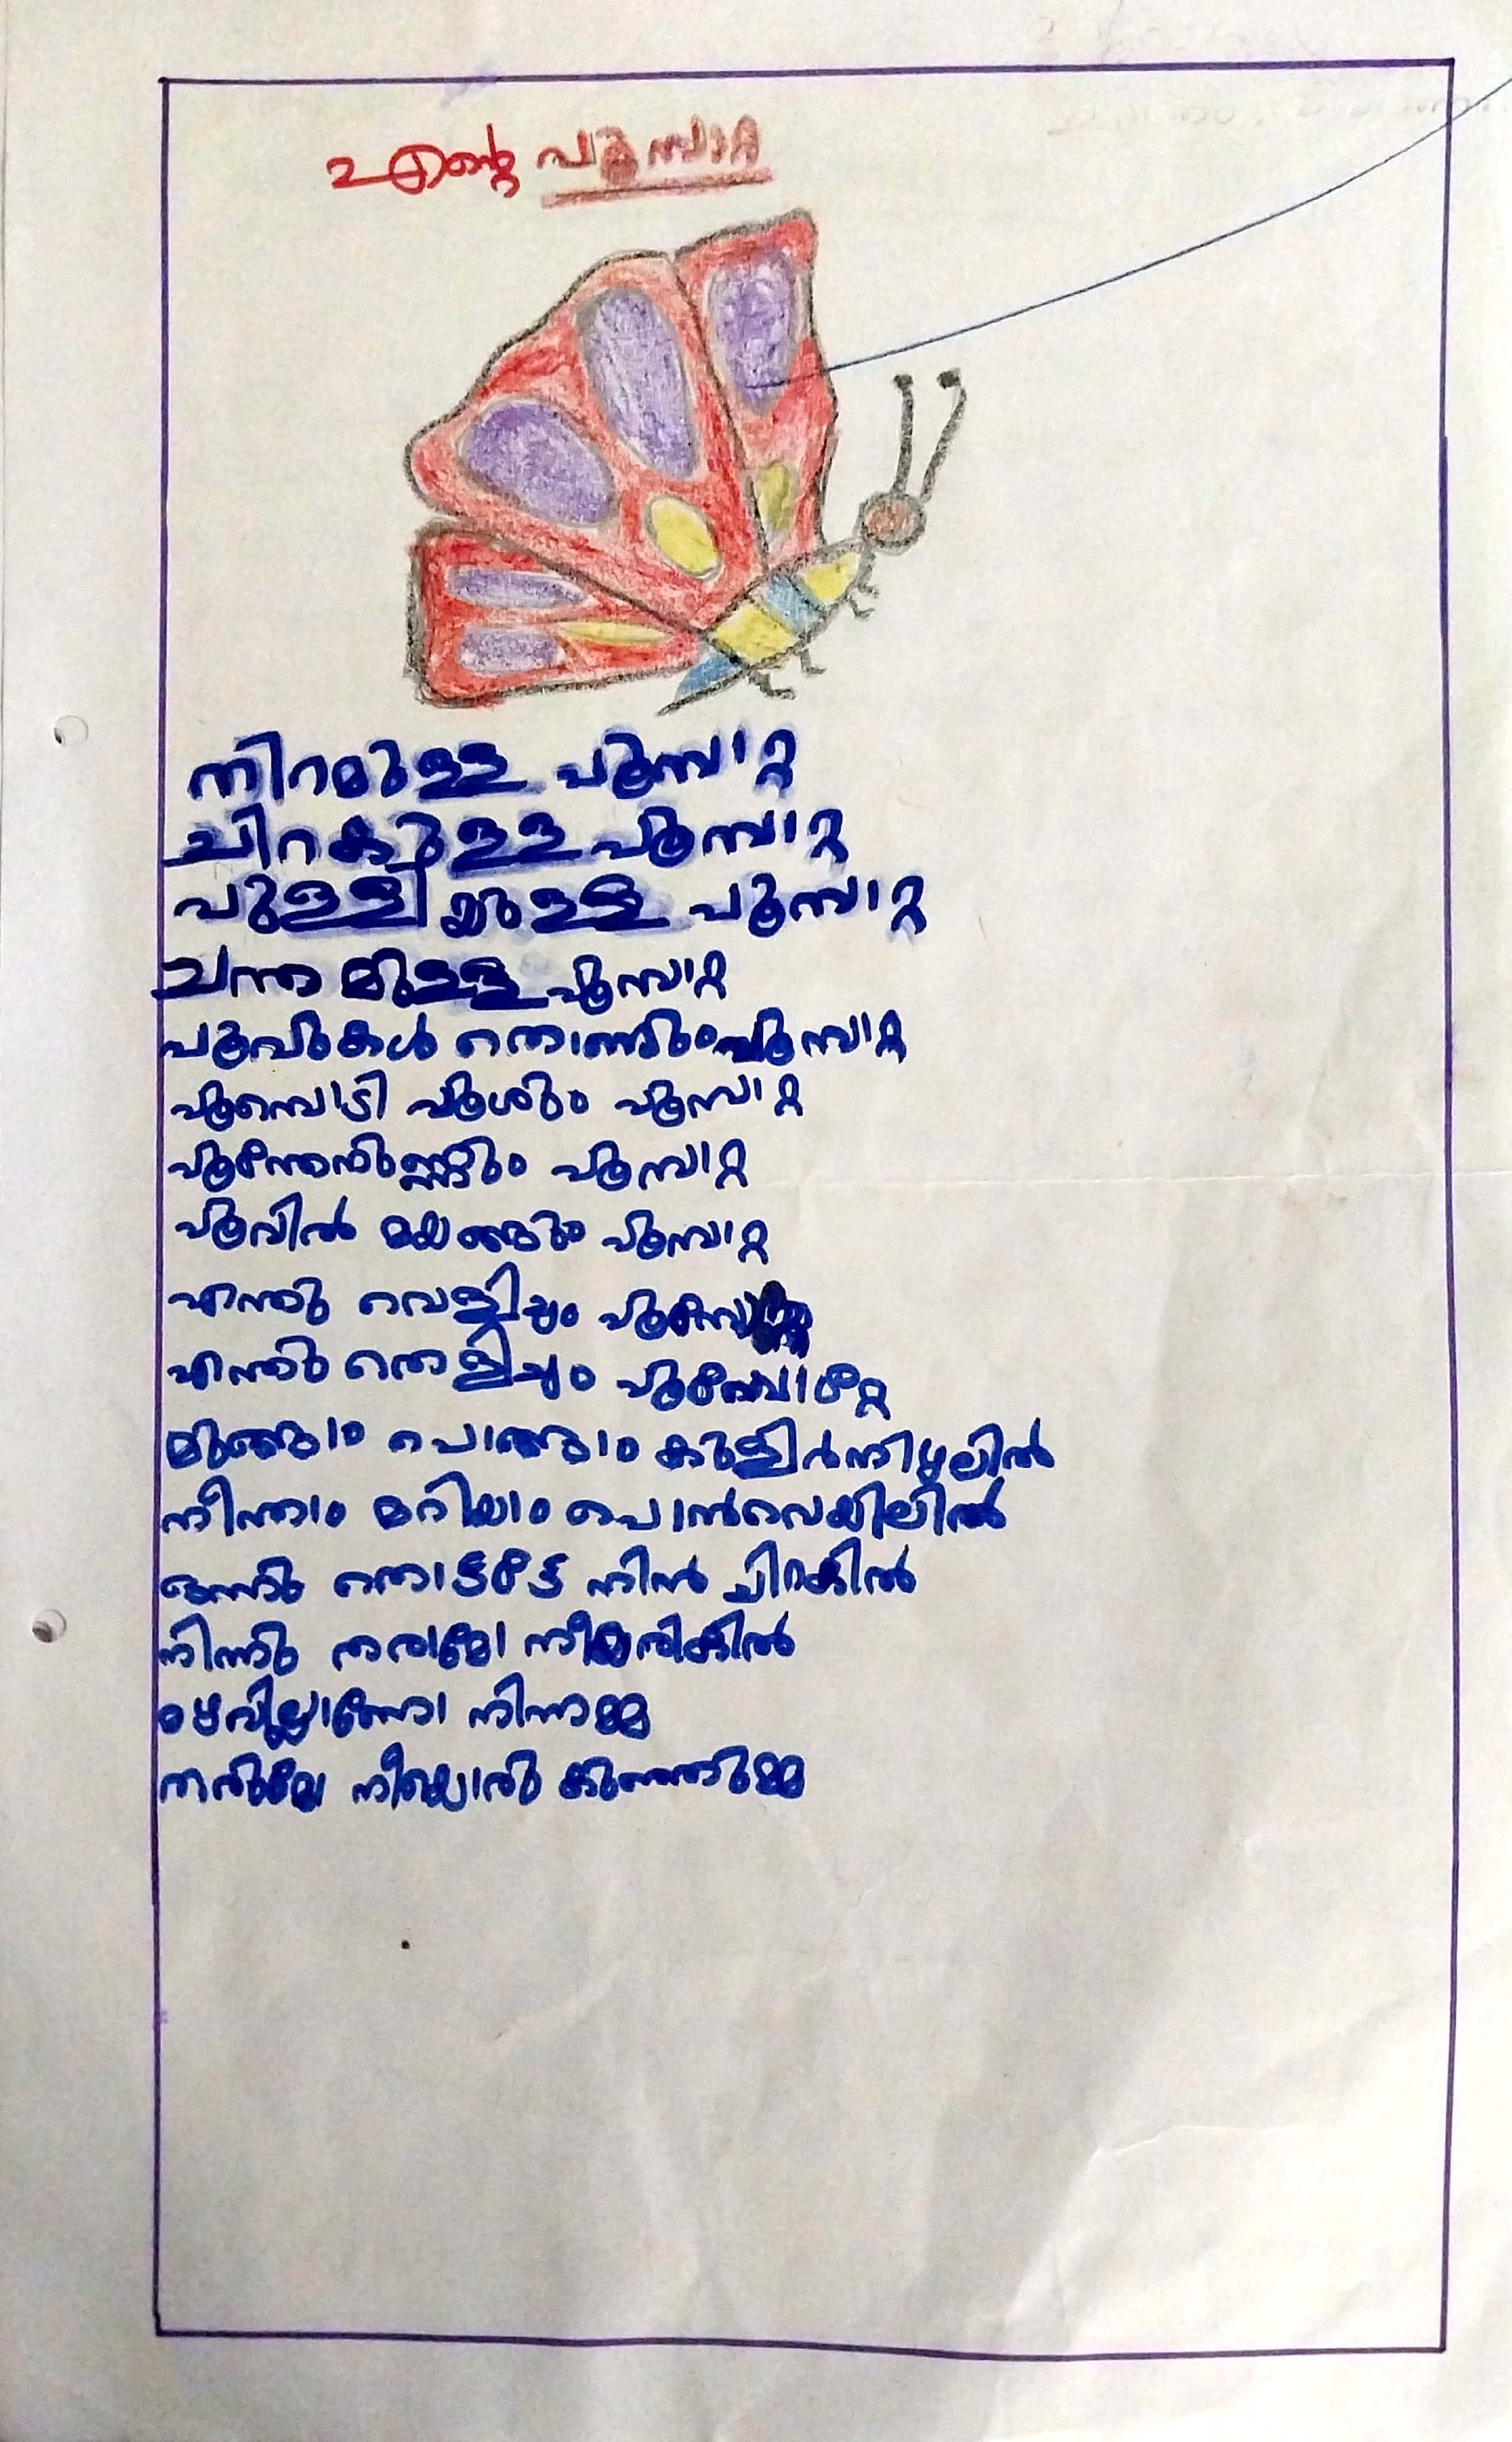 എന്റെ പൂമ്പാറ്റ
നിറമുള്ള പൂമ്പാറ്റ
ചിറകുള്ള പൂമ്പാറ്റ
പുള്ളിയുള്ള പൂമ്പാറ്റ
ചന്തമുള്ള പൂമ്പാറ്റ
പൂവുകൾ തെണ്ടും പൂമ്പാറ്റ
പൂമ്പൊടി പൂശും പൂമ്പാറ്റ
പൂന്തേനുണ്ണും പൂമ്പാറ്റ
പൂവിൽ മയങ്ങും പൂമ്പാറ്റ
എന്തു വെളിച്ചം
എന്തു തെളിച്ചം പൂമ്പാറ്റേ
മുങ്ങാം പൊങ്ങാം കുളിർനിഴലിൽ
നീന്താം മറിയാം പൊൻവെയിലിൽ
ഒന്നു തൊട്ടോട്ടേ നിൻ ചിറകിൽ
നിന്നു തരാമോ നീയരികിൽ
മഴവില്ലാണോ നിന്നമ്മ
നീയൊരു കുഞ്ഞുമ്മ